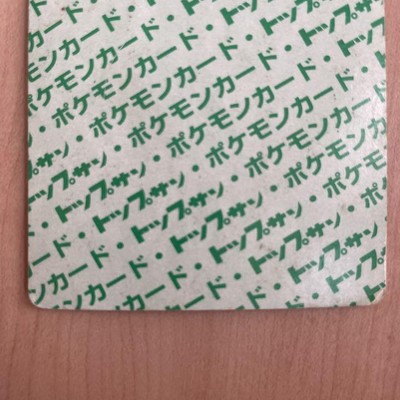 カード・
ンカード・トップ
ポケモンカード・トップサン
・ポケモンカード・トップサン
サン・ポケモンカード・トップ
トップサン・ポケモンカード・
・トップサン・ポケモンカード
ド・トップサン・ポケモンカ
カード・トップサン・ポケモン
ンカード・トップサン・ポケ
カード・トップサン
ド・トップサン